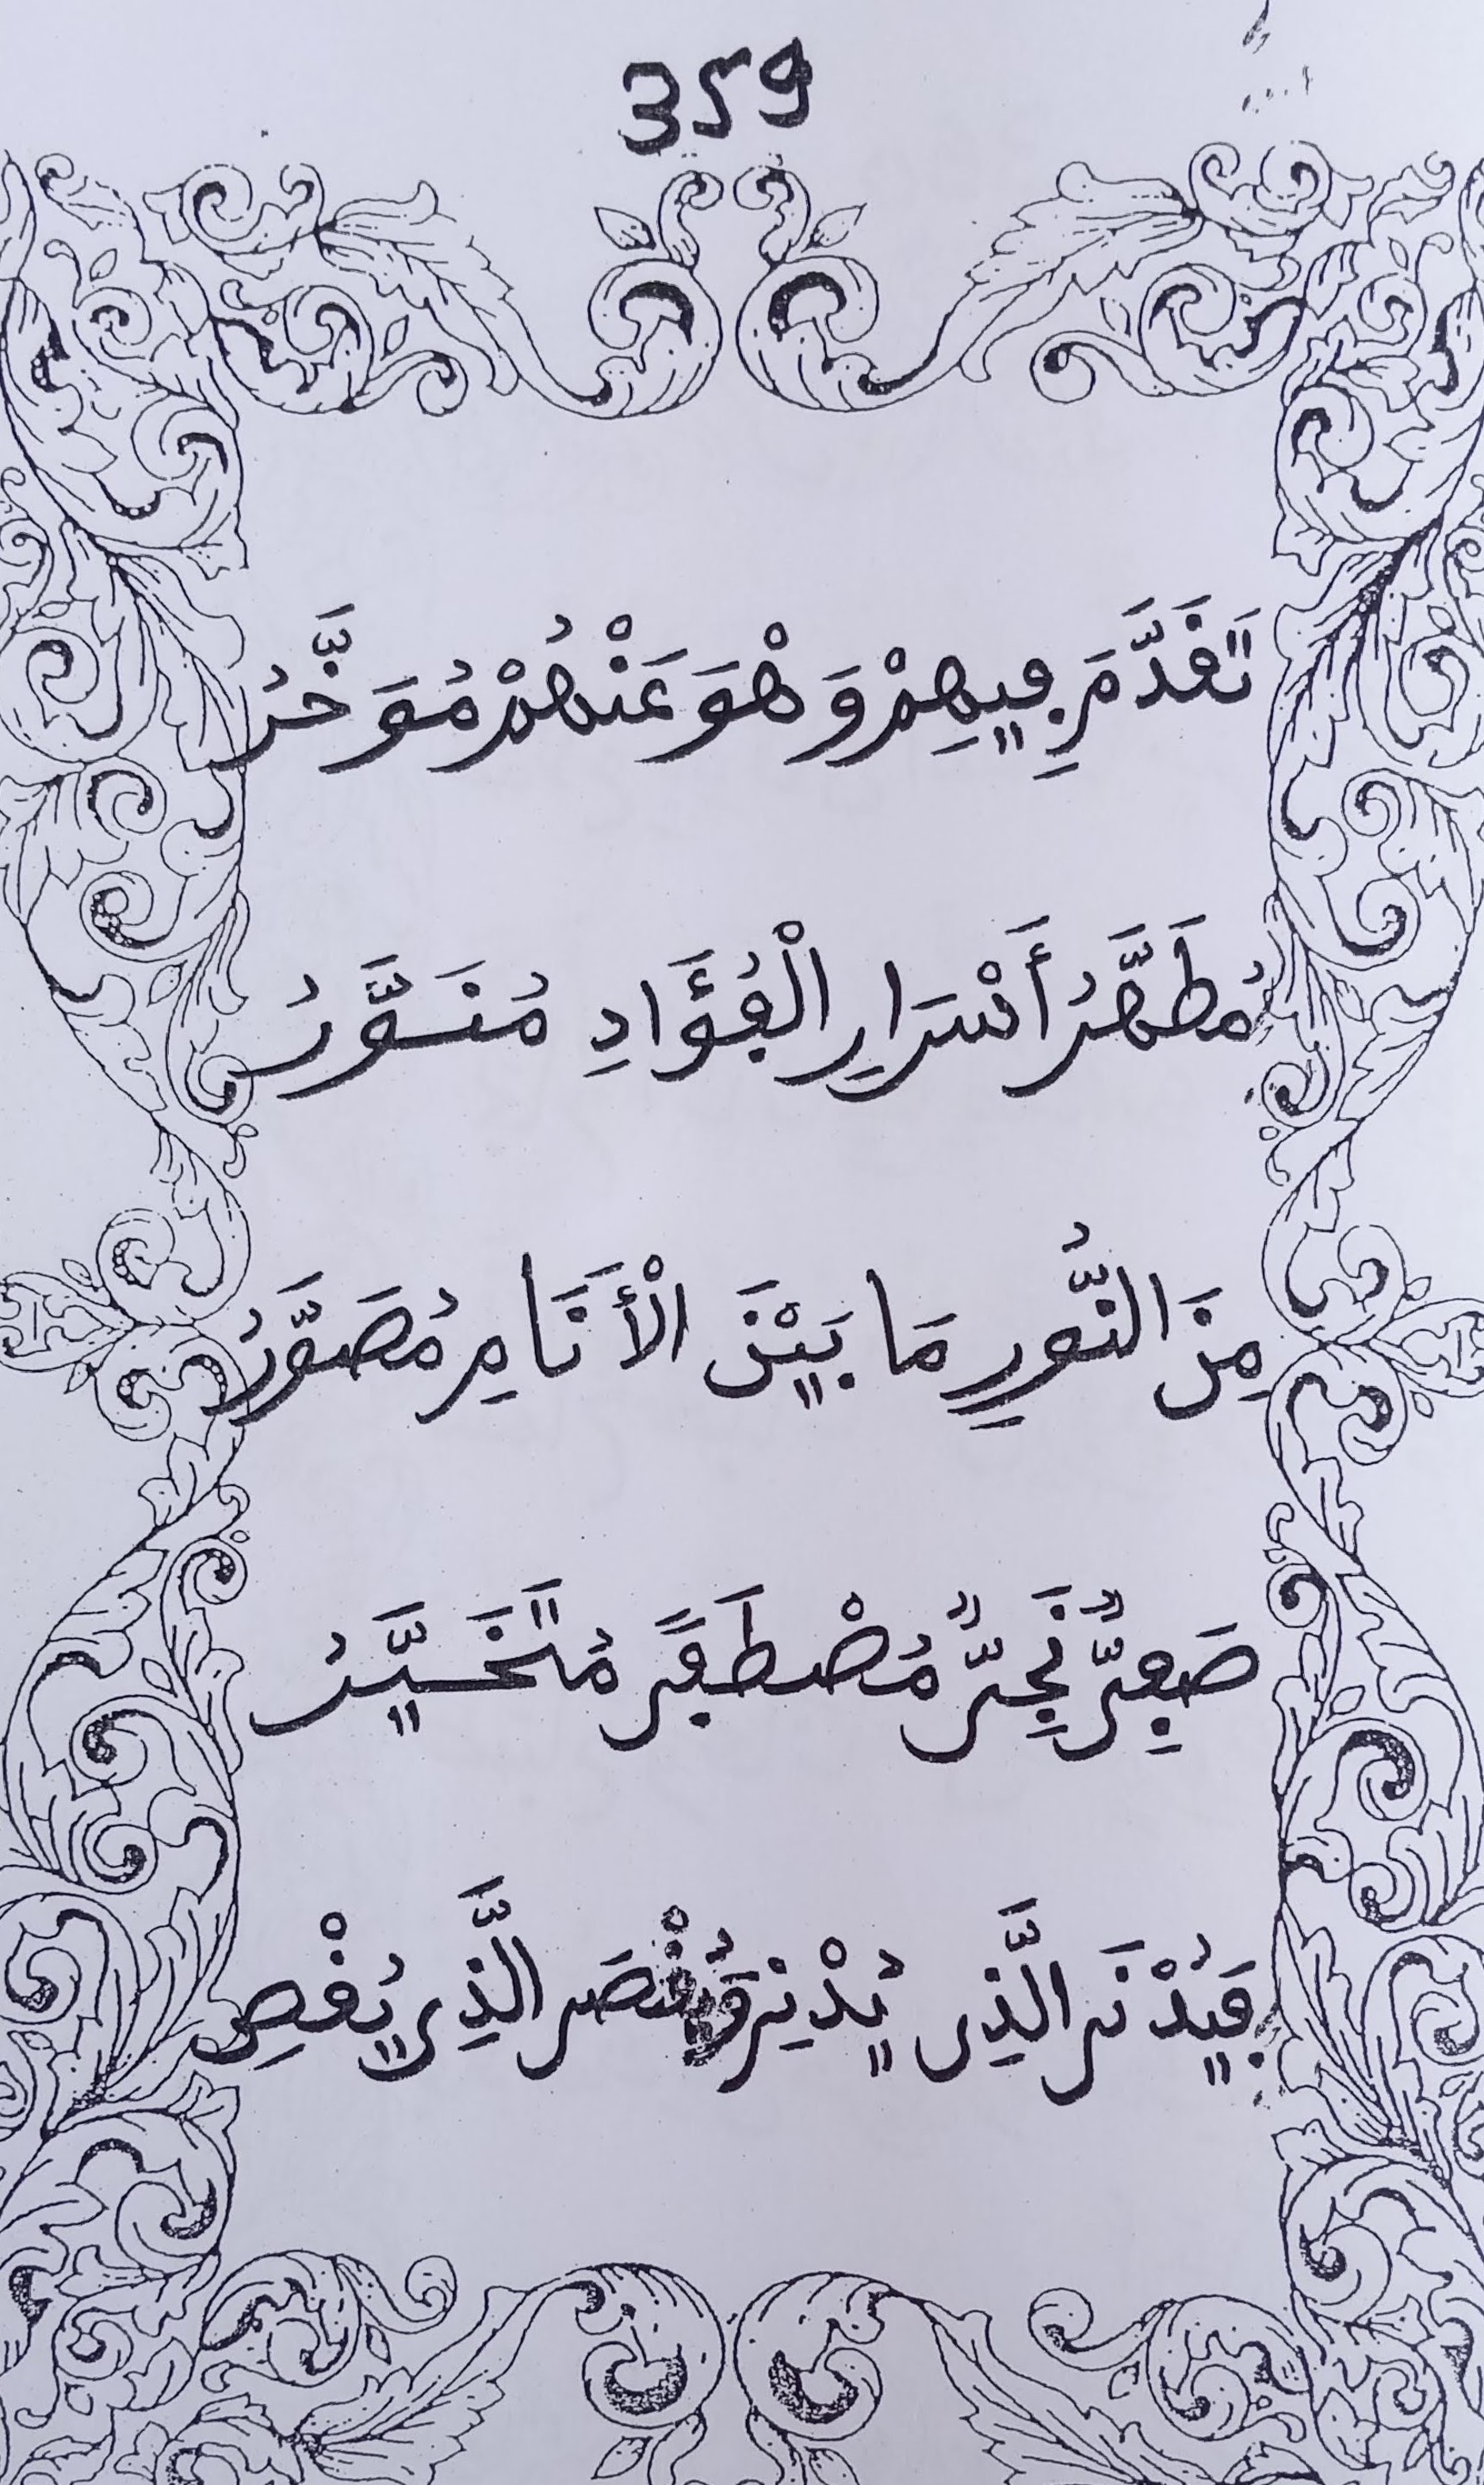 359
تَقَدَّمَ فِيهِمْ وَهْوَ عَنْهُمْ مُوَخَّرُ
مُطَهَّرُ أَسْرَارِ الْفُؤَادِ مُنَوَّرُ
مِنَ النُّورِ مَا بَيْنَ الْأَنَامِ مُصَوَّرُ
صَفِيٌّ نَجِيٌّ مُصْطَفًى مُتَخَيَّرُ
فَيُدْنَى الَّذِي يُدْنِي وَيُقْصَى الَّذِي يُقْصِ